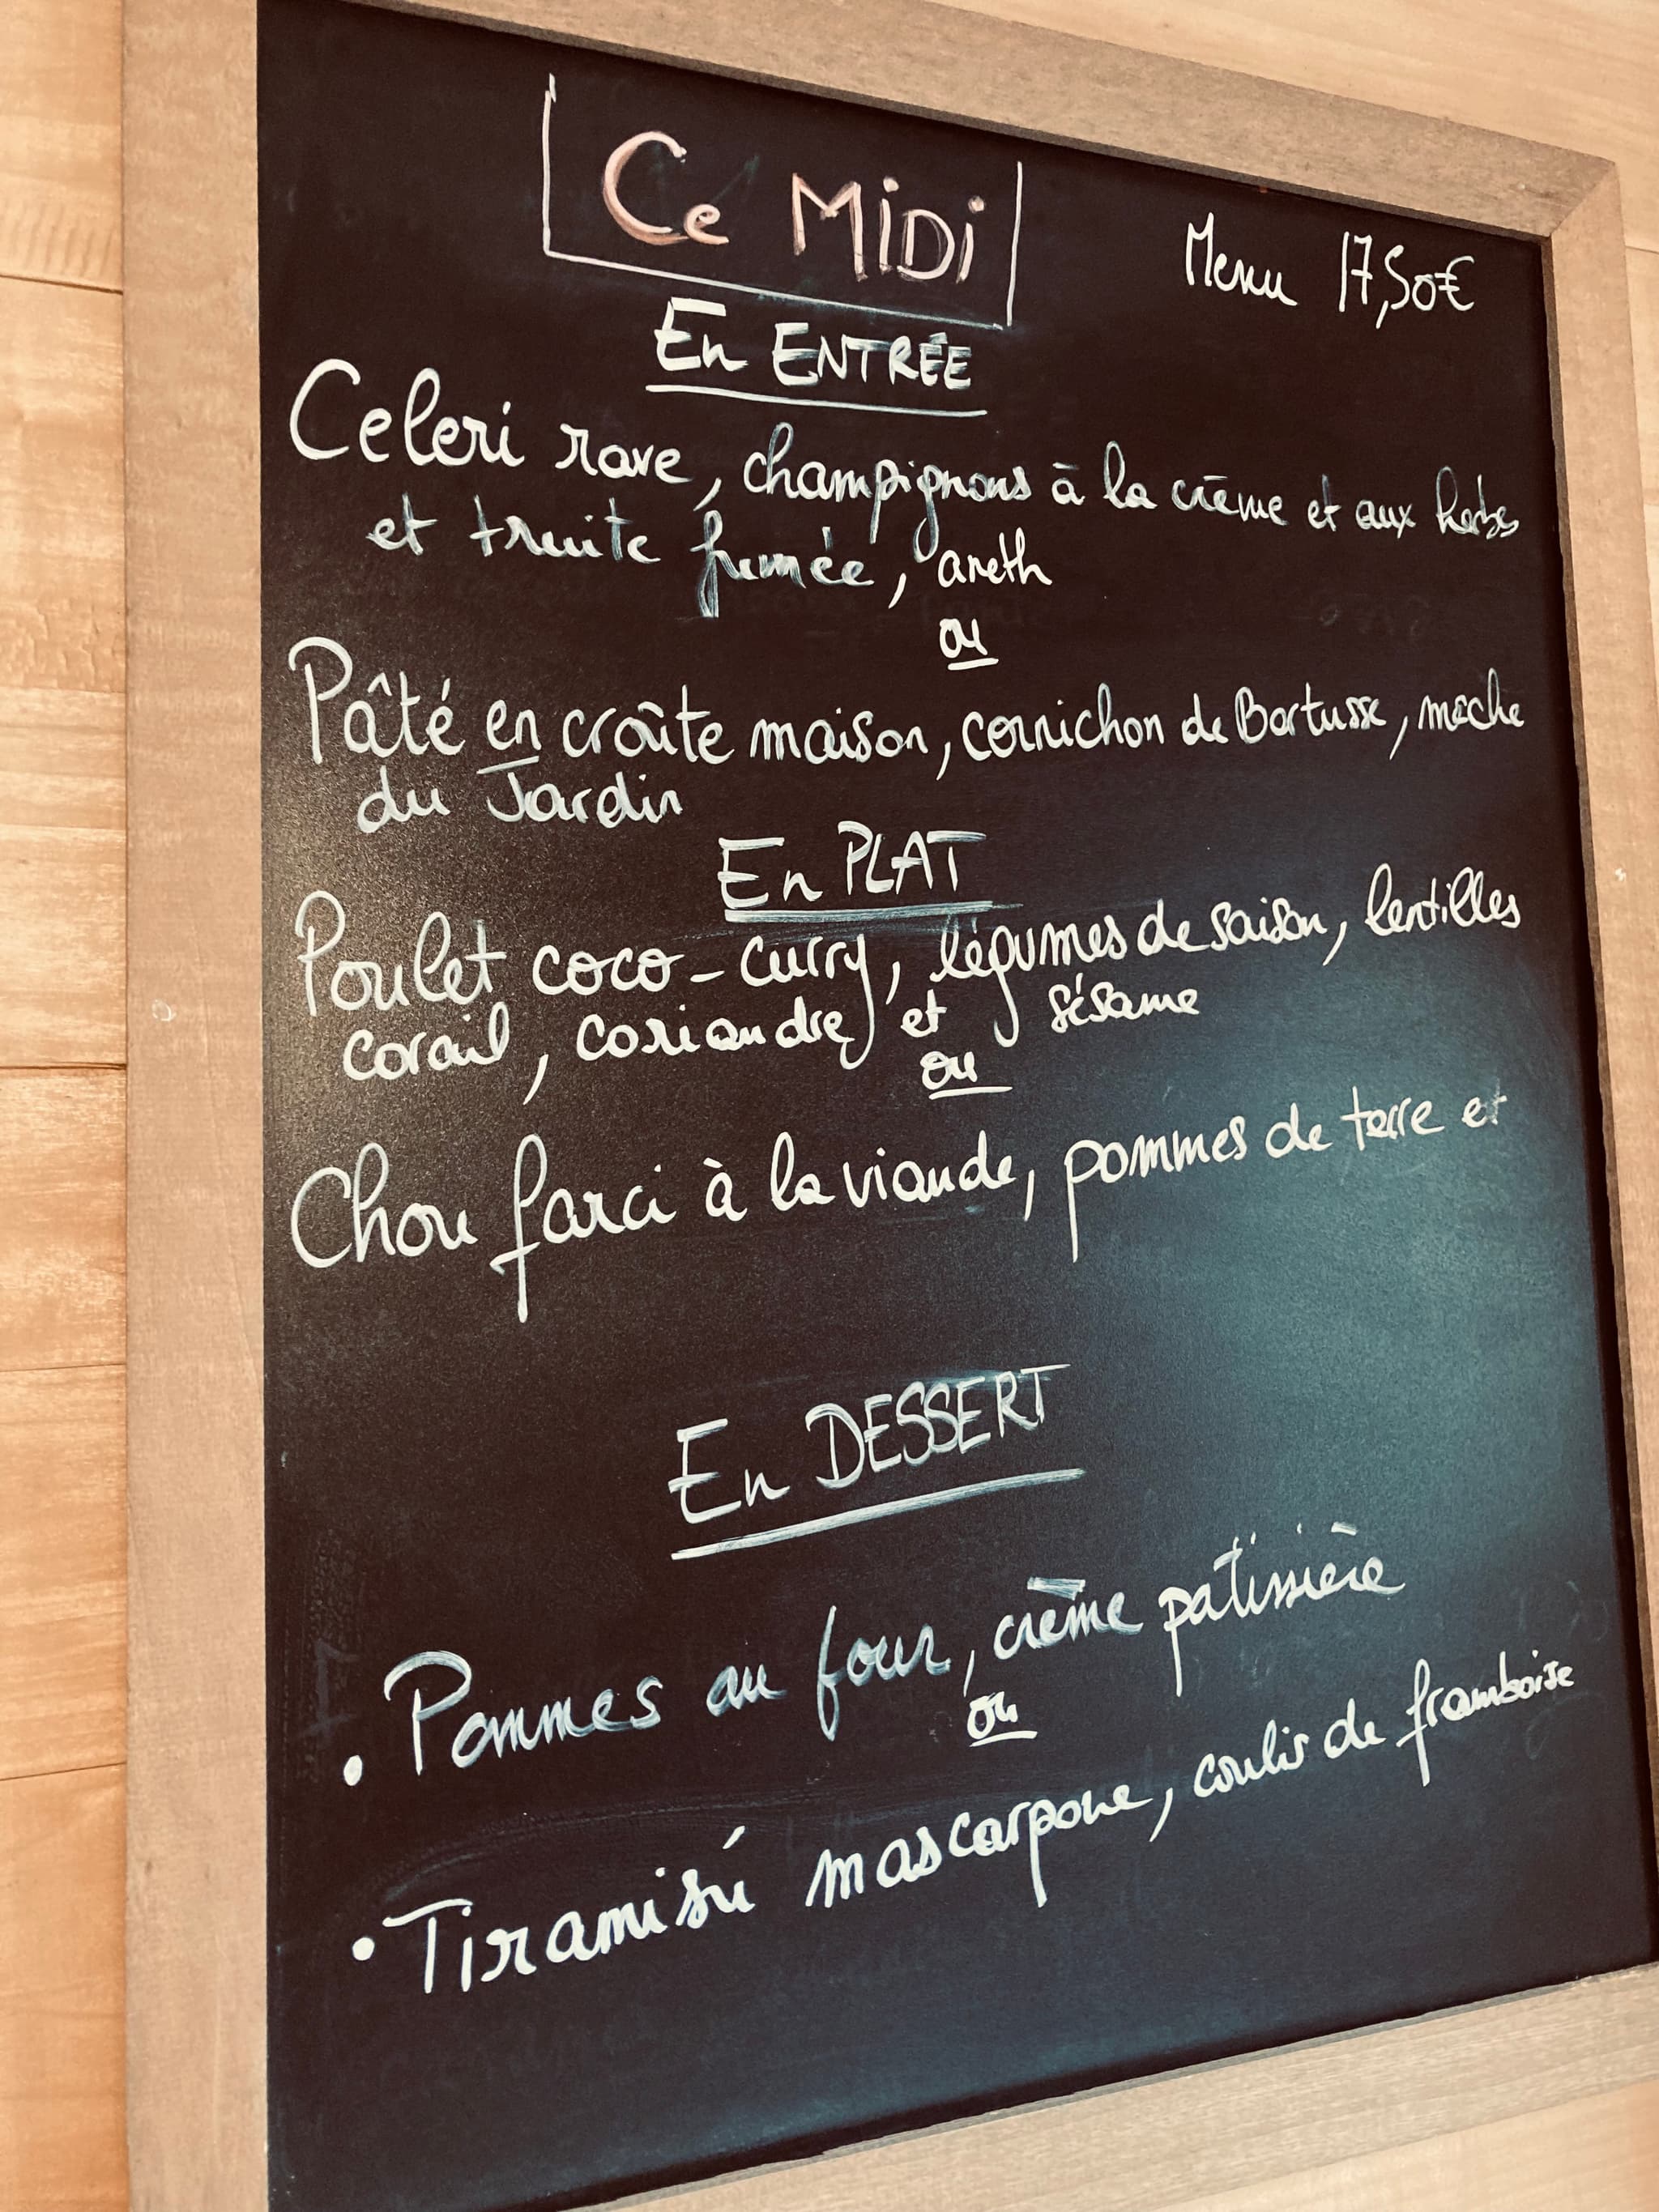 Ce MiDi
Menu 17,50€
En ENTRÉE
Celeri rave, champignons à la crème et aux herbes
et truite fumée, aneth
ou
Pâté en croûte maison, cornichon de Bartusse, mache
du Jardin
En PLAT
Poulet coco-curry, légumes de saison, lentilles
corail, coriandre et sésame
ou
Chou farci à la viande, pommes de terre et
En DESSERT
• Pommes au four, crème patissière
ou
• Tiramisú mascarpone, coulis de framboise